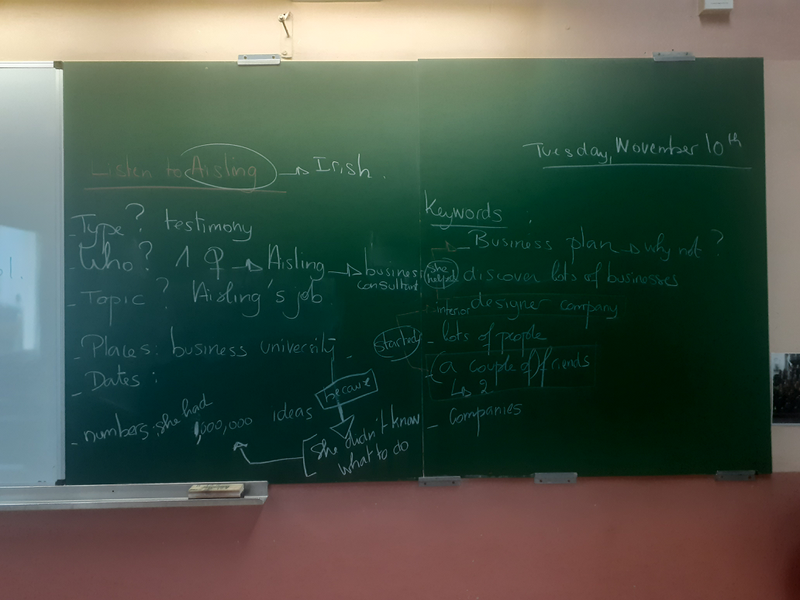 Listen to Aisling → Irish.
- Type? testimony
- Who? 1 ♀ → Aisling → business consultant
- Topic? Aisling's job
- Places: business university
- Dates:
- numbers: she had 1,000,000 ideas
because
[she didn't know
what to do
Tuesday, November 10th
Keywords:
- Business plan → why not?
she helped discover lots of businesses
- interior designer company
started
- lots of people
- (a couple of friends
↳ 2
- companies